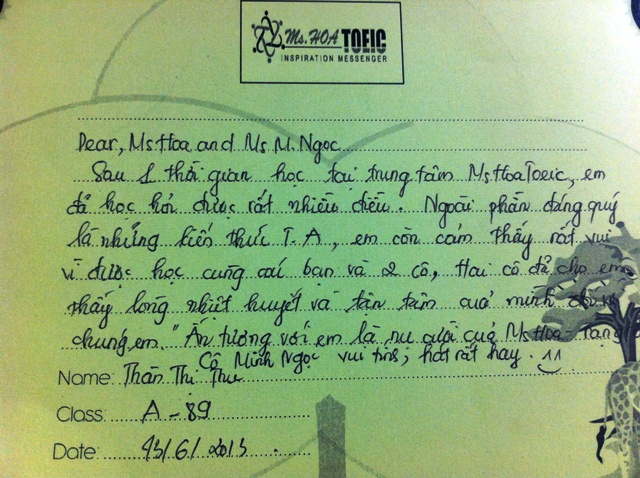 Ms. HOA TOEIC
INSPIRATION MESSENGER
Dear, Ms Hoa and Ms M. Ngọc
Sau 1 thời gian học tại trung tâm Ms Hoa Toeic, em
đã học hỏi được rất nhiều điều. Ngoài phần đáng quý
là những kiến thức T.A, em còn cảm thấy rất vui
vì được học cùng các bạn và 2 cô, Hai cô đã cho em
thấy lòng nhiệt huyết và tận tâm của mình
chúng em. "Ấn tượng với em là nụ cười của Ms Hoa -
Cô Minh Ngọc vui tính; hát rất hay. ^^
Name: Thân Thị Thu
Class: A - 89
Date: 13/6/2013